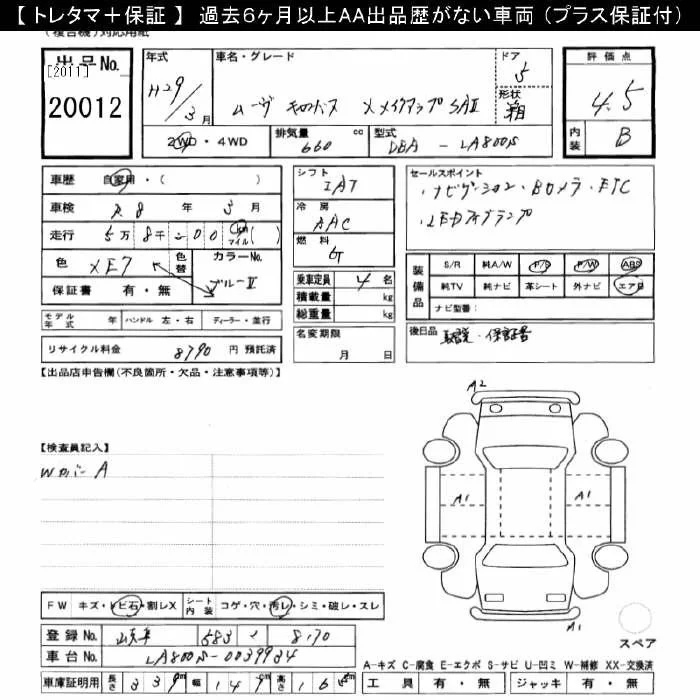 【 トレタマ＋保証 】 過去6ヶ月以上AA出品歴がない車両 (プラス保証付)
(複合機)対応用紙
出品No.
[2011]
20012
年式
H29/3月
車名・グレード
ムーヴ キャンバス Xメイクアップ SAⅡ
ドア
5
形状
箱
評価点
4.5
内装
B
2WD・4WD
排気量
660 cc
型式
DBA - LA800S
車歴 自家用・( )
車検 R8 年 3 月
走行 5万 8千 200 km マイル ( )
色 XE7 色替
カラーNo.
ブルーⅡ
保証書 有・無
シフト
IAT
冷房
AAC
燃料
G
乗車定員 4 名
積載量 kg
総重量 kg
セールスポイント
・ナビゲーション・Bカメラ・ETC
・LEDフォグランプ
装備品
S/R 純A/W P/S P/W ABS
純TV 純ナビ 革シート 外ナビ エアB
ナビ型番:
モデル年式 年 ハンドル 左・右 ディーラー・並行
リサイクル料金 8790 円 預託済
名変期限
月 日
後日品
取説・保証書
【出品店申告欄(不良箇所・欠品・注意事項等)】
【検査員記入】
Wカバー A
A2
A1
A1
A1
スペア
FW キズ・トビ石・割レX
シート内装 コゲ・穴・汚レ・シミ・破レ・スレ
登録No. 岐阜 583 8170
車台No. LA800S-0039934
車庫証明用 長さ 339 cm 幅 147 cm 高さ 165 cm
A-キズ C-腐食 E-エクボ S-サビ U-凹ミ W-補修 XX-交換済
工具 有・無 ジャッキ 有・無